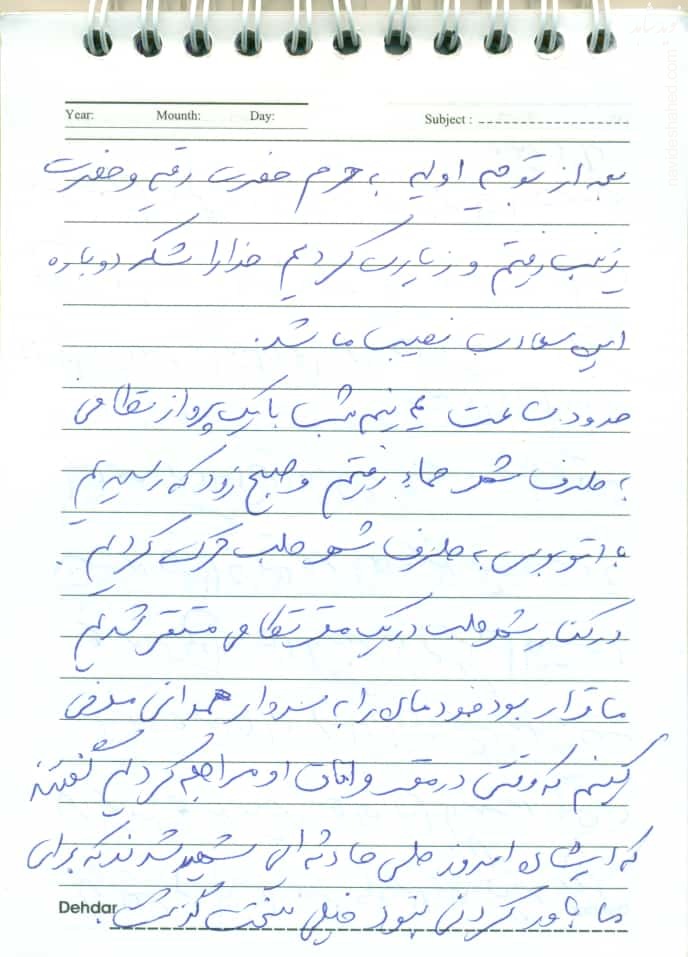 Year: Mounth: Day: Subject :
بعد از توجیه اولیه به حرم حضرت رقیه و حضرت
زینب رفتیم و زیارت کردیم خدا را شکر دوباره
این سعادت نصیب ما شد.
حدود ساعت نیمه شب با یک پرواز نظامی
به طرف شهر حماء رفتیم و صبح زود که رسیدیم
با اتوبوس به طرف شهر حلب حرکت کردیم.
در کنار شهر حلب در یک مقر نظامی مستقر شدیم
ما قرار بود خودمان را به سردار همدانی معرفی
کنیم که وقتی در مقر و اتاق او مراجعه کردیم گفتند
که ایشان امروز طی حادثه ای شهید شدند که برای
ما باور کردنی نبود خیلی سخت گذشت.
Dehdar
navideshahed.com